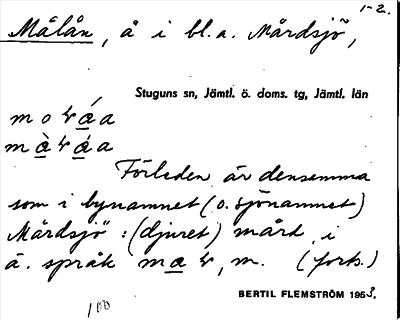 1-2.
Målån, å i bl.a. Mårdsjö,
Stuguns sn, Jämtl. ö. doms. tg, Jämtl. län
Förleden är densamma
som i bynamnet (o. sjönamnet)
Mårdsjö: (djuret) mård, i
ä. språk
m. (forts.)
BERTIL FLEMSTRÖM 1953.
100